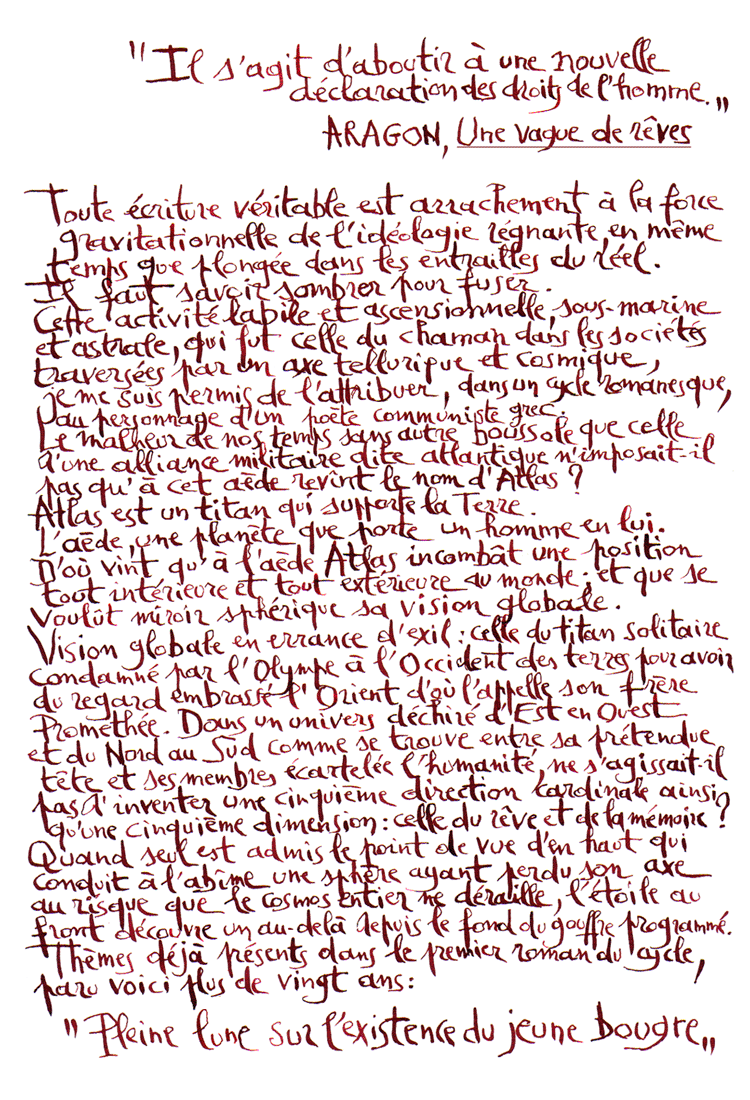 "Il s'agit d'aboutir à une nouvelle
déclaration des droits de l'homme."
ARAGON, Une vague de rêves
Toute écriture véritable est arrachement à la force
gravitationnelle de l'idéologie régnante, en même
temps que plongée dans les entrailles du réel.
Il faut savoir sombrer pour fuser.
Cette activité labile et ascensionnelle, sous-marine
et astrale, qui fut celle du chaman dans les sociétés
traversées par un axe tellurique et cosmique,
je me suis permis de l'attribuer, dans un cycle romanesque,
au personnage d'un poète communiste grec.
Le malheur de nos temps sans autre boussole que celle
d'une alliance militaire dite atlantique n'imposait-il
pas qu'à cet aède revînt le nom d'Atlas ?
Atlas est un titan qui supporte la Terre.
L'aède, une planète que porte un homme en lui.
D'où vint qu'à l'aède Atlas incombât une position
tout intérieure et tout extérieure au monde ; et que se
voulût miroir sphérique sa vision globale.
Vision globale en errance d'exil : celle du titan solitaire
condamné par l'Olympe à l'Occident des terres pour avoir
du regard embrassé l'Orient d'où l'appelle son frère
Prométhée. Dans un univers déchiré d'Est en Ouest
et du Nord au Sud comme se trouve entre sa prétendue
tête et ses membres écartelée l'humanité, ne s'agissait-il
pas d'inventer une cinquième direction cardinale ainsi
qu'une cinquième dimension : celle du rêve et de la mémoire ?
Quand seul est admis le point de vue d'en haut qui
conduit à l'abîme une sphère ayant perdu son axe
au risque que le cosmos entier ne déraille, l'étoile au
front découvre un au-delà depuis le fond du gouffre programmé.
Thèmes déjà présents dans le premier roman du cycle,
paru voici plus de vingt ans :
"Pleine lune sur l'existence du jeune bougre"